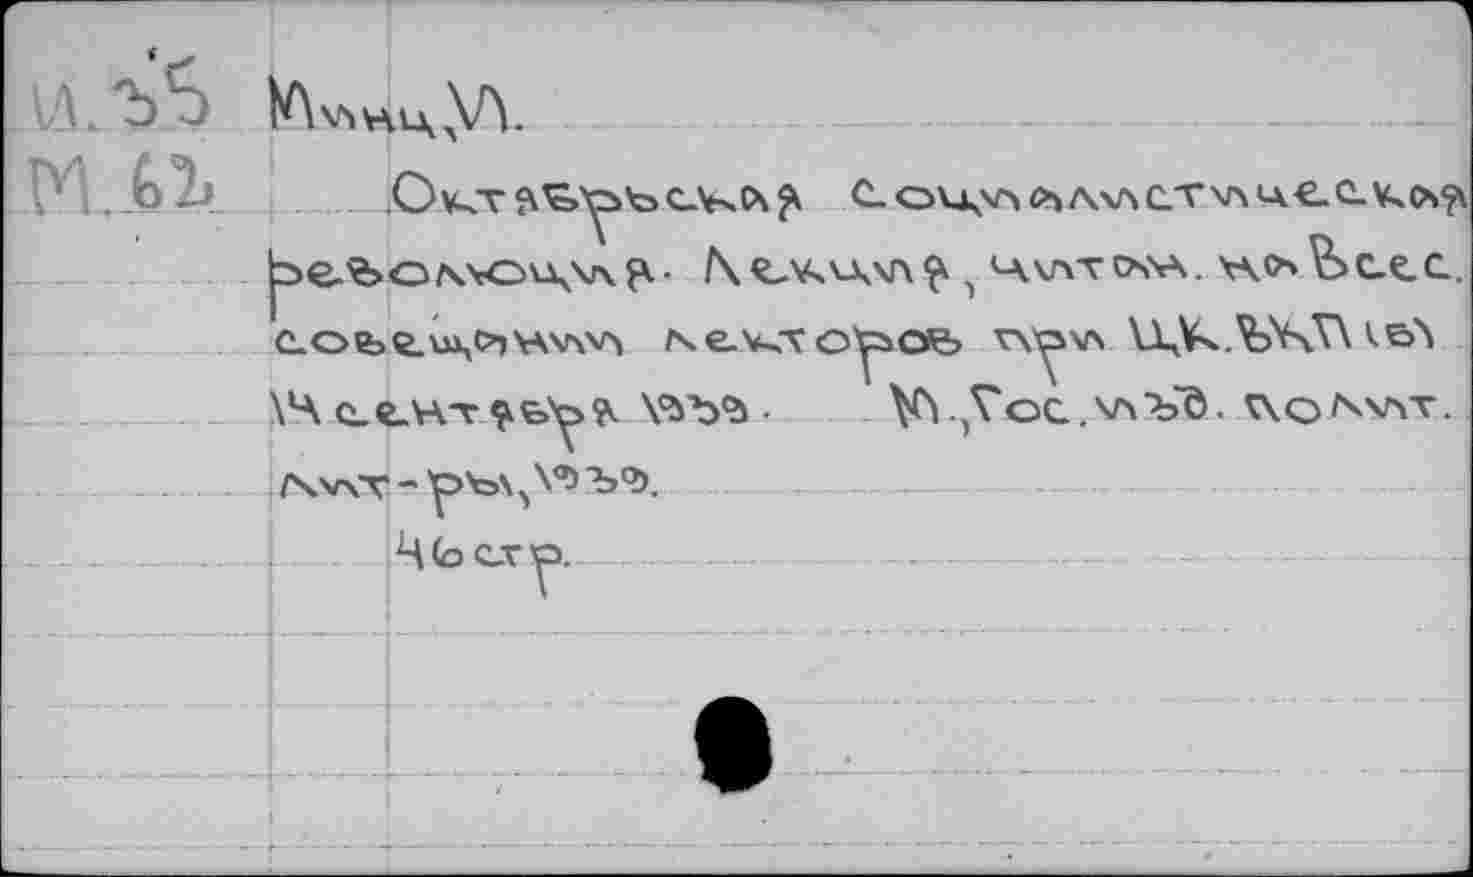 И.35 Минц,И.
М.62 Октябрьская социалистическая
революция. Лекция, читан. на Всес.
совещании лекторов при Ц,К.ВКП(в)
14 сентября 1939. М.,Гос.изд. полит.
лит-ры,1939.
46 стр.